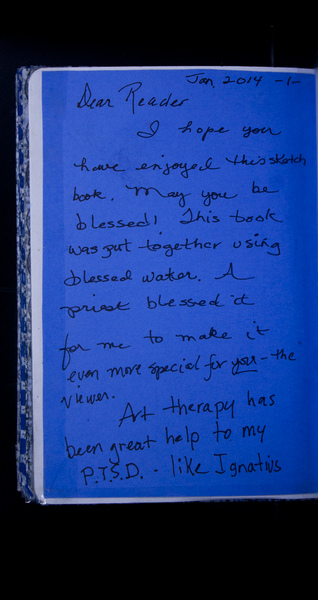 Jan, 2014 -1-
Dear Reader
I hope you
have enjoyed this sketch
book. May you be
blessed! This book
was put together using
blessed water. A
priest blessed it
for me to make it
even more special for you - the
viewer.
Art therapy has
been great help to my
P.T.S.D. - like Ignatius